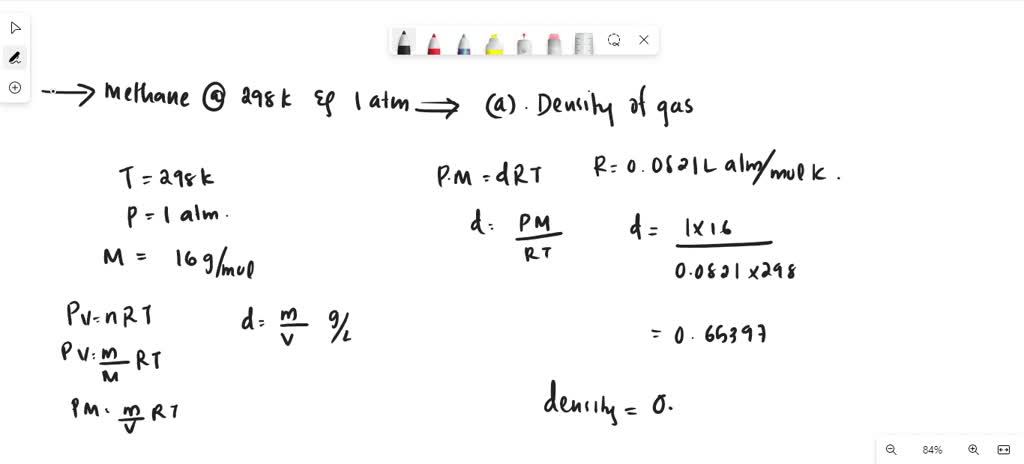 → Methane @ 298k & 1 atm ⟹ (a). Density of gas
T = 298k
P = 1 atm.
M = 16 g/mol
PV = nRT
PV = m/M RT
PM = m/V RT
d = m/V g/L
P.M = dRT
d = PM/RT
R = 0.0821 L atm/mol k.
d = 1x16/0.0821 x298
= 0.65397
density = 0.
84%